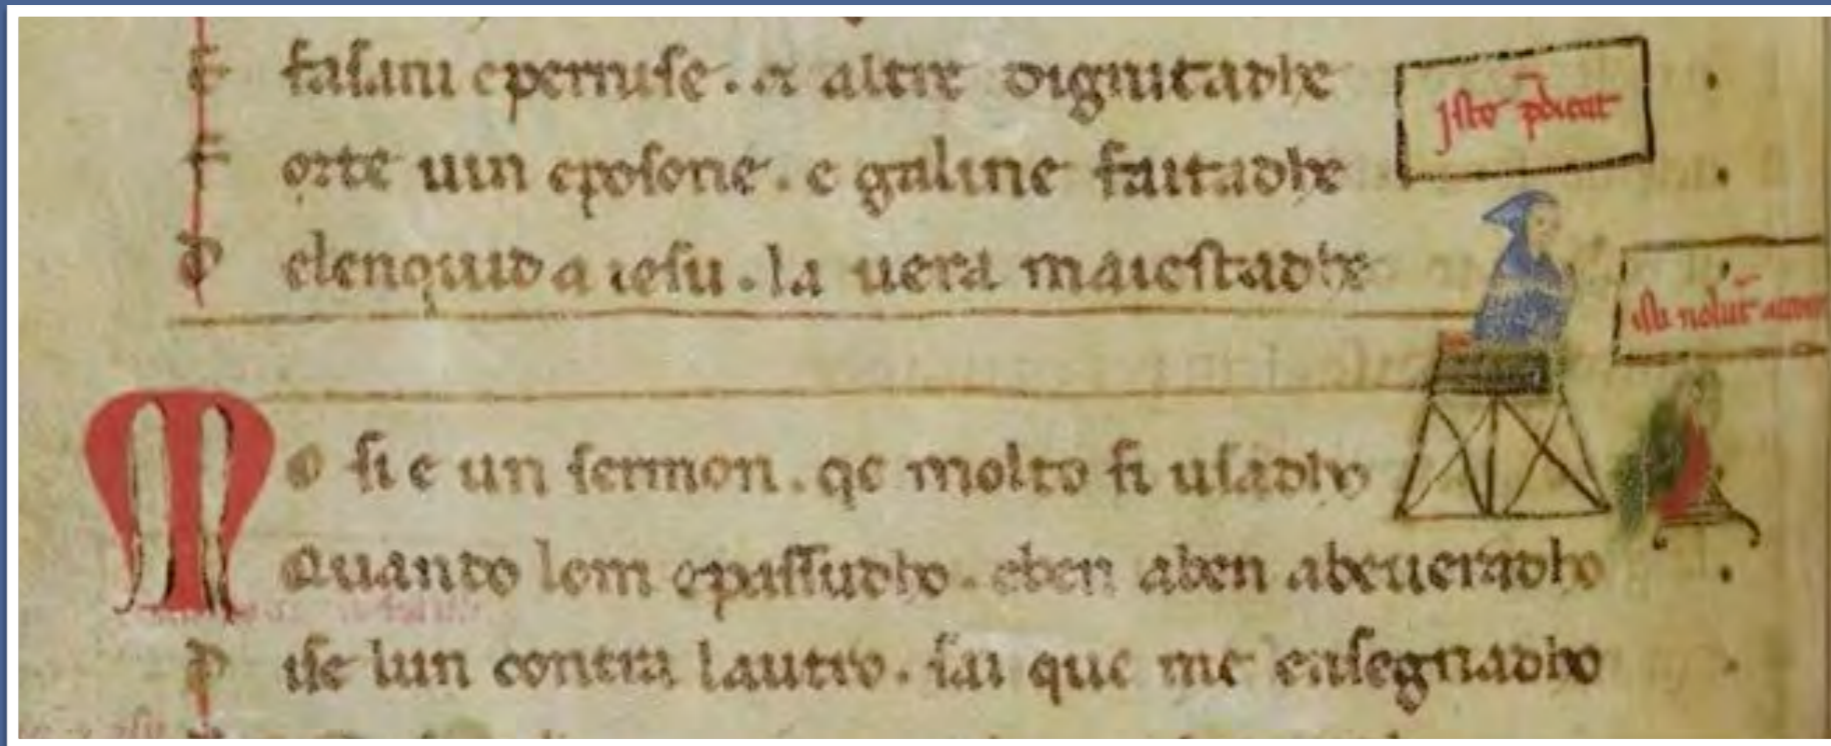 F fasani e pernise . & altre dignitadhe
F orte uin e posone . e galine faitadhe
D elenquid a iesu . la uera maiestadhe
jsto pdicat
isti nolut
Mo si e un sermon . qe molto fi usadho
Quando lom e passudho . e ben aben abeueradho
D ise lun contra lautro . sai que me ensegnadho